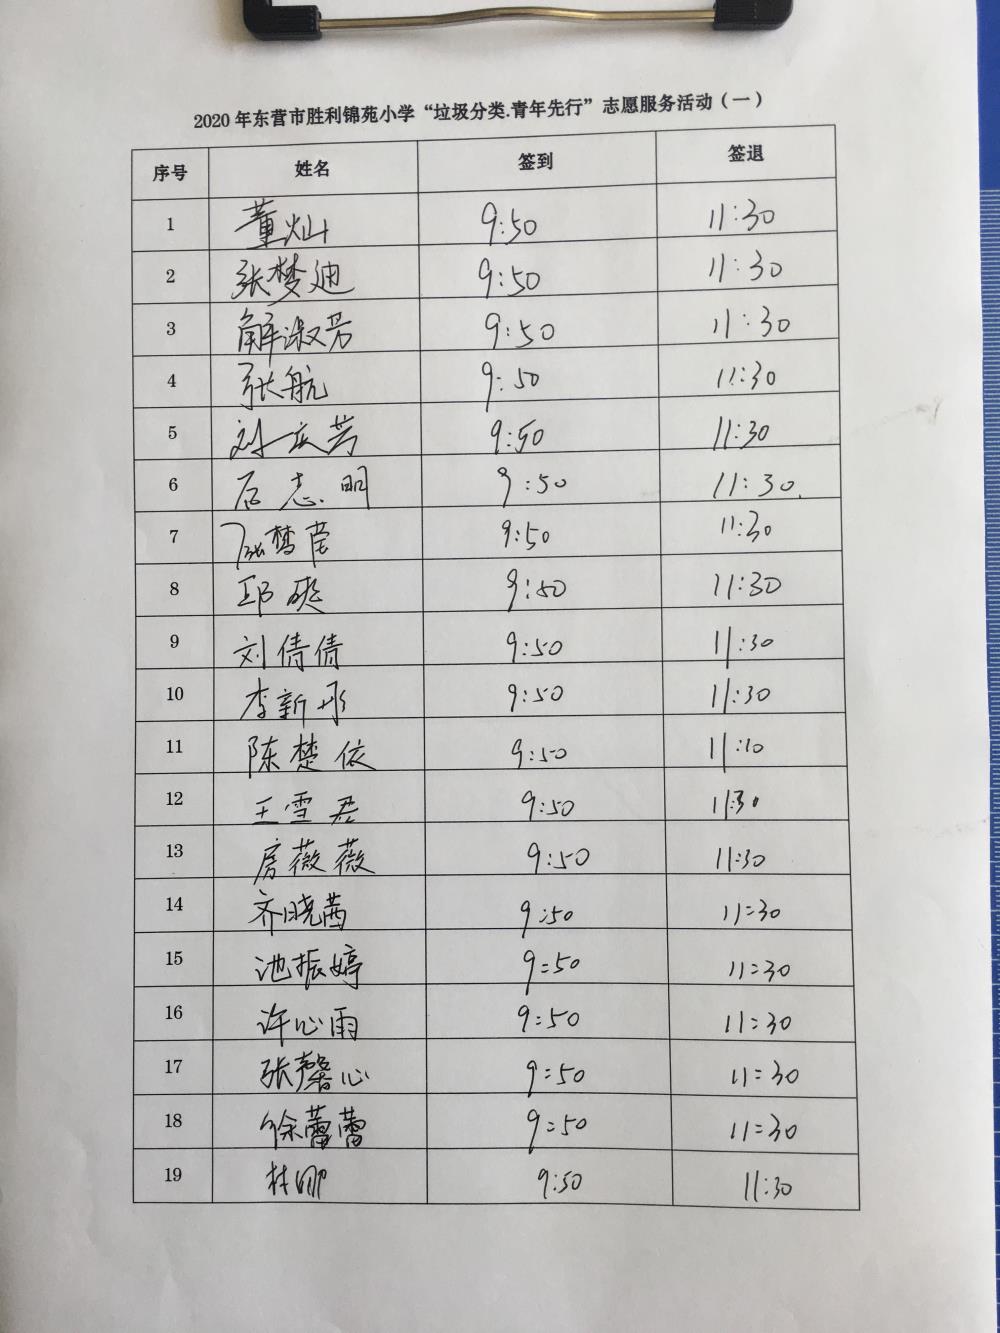 2020 年东营市胜利锦苑小学“垃圾分类.青年先行”志愿服务活动（一）
序号 姓名 签到 签退
1 董灿 9:50 11:30
2 张梦迪 9:50 11:30
3 解淑芳 9:50 11:30
4 张航 9:50 11:30
5 刘庆芳 9:50 11:30
6 石志明 9:50 11:30
7 张梦莹 9:50 11:30
8 邱爽 9:50 11:30
9 刘倩倩 9:50 11:30
10 李新彤 9:50 11:30
11 陈楚依 9:50 11:10
12 王雪君 9:50 11:30
13 房薇薇 9:50 11:30
14 齐晓茜 9:50 11:30
15 池振婷 9:50 11:30
16 许心雨 9:50 11:30
17 张馨心 9:50 11:30
18 徐蕾蕾 9:50 11:30
19 林娜 9:50 11:30